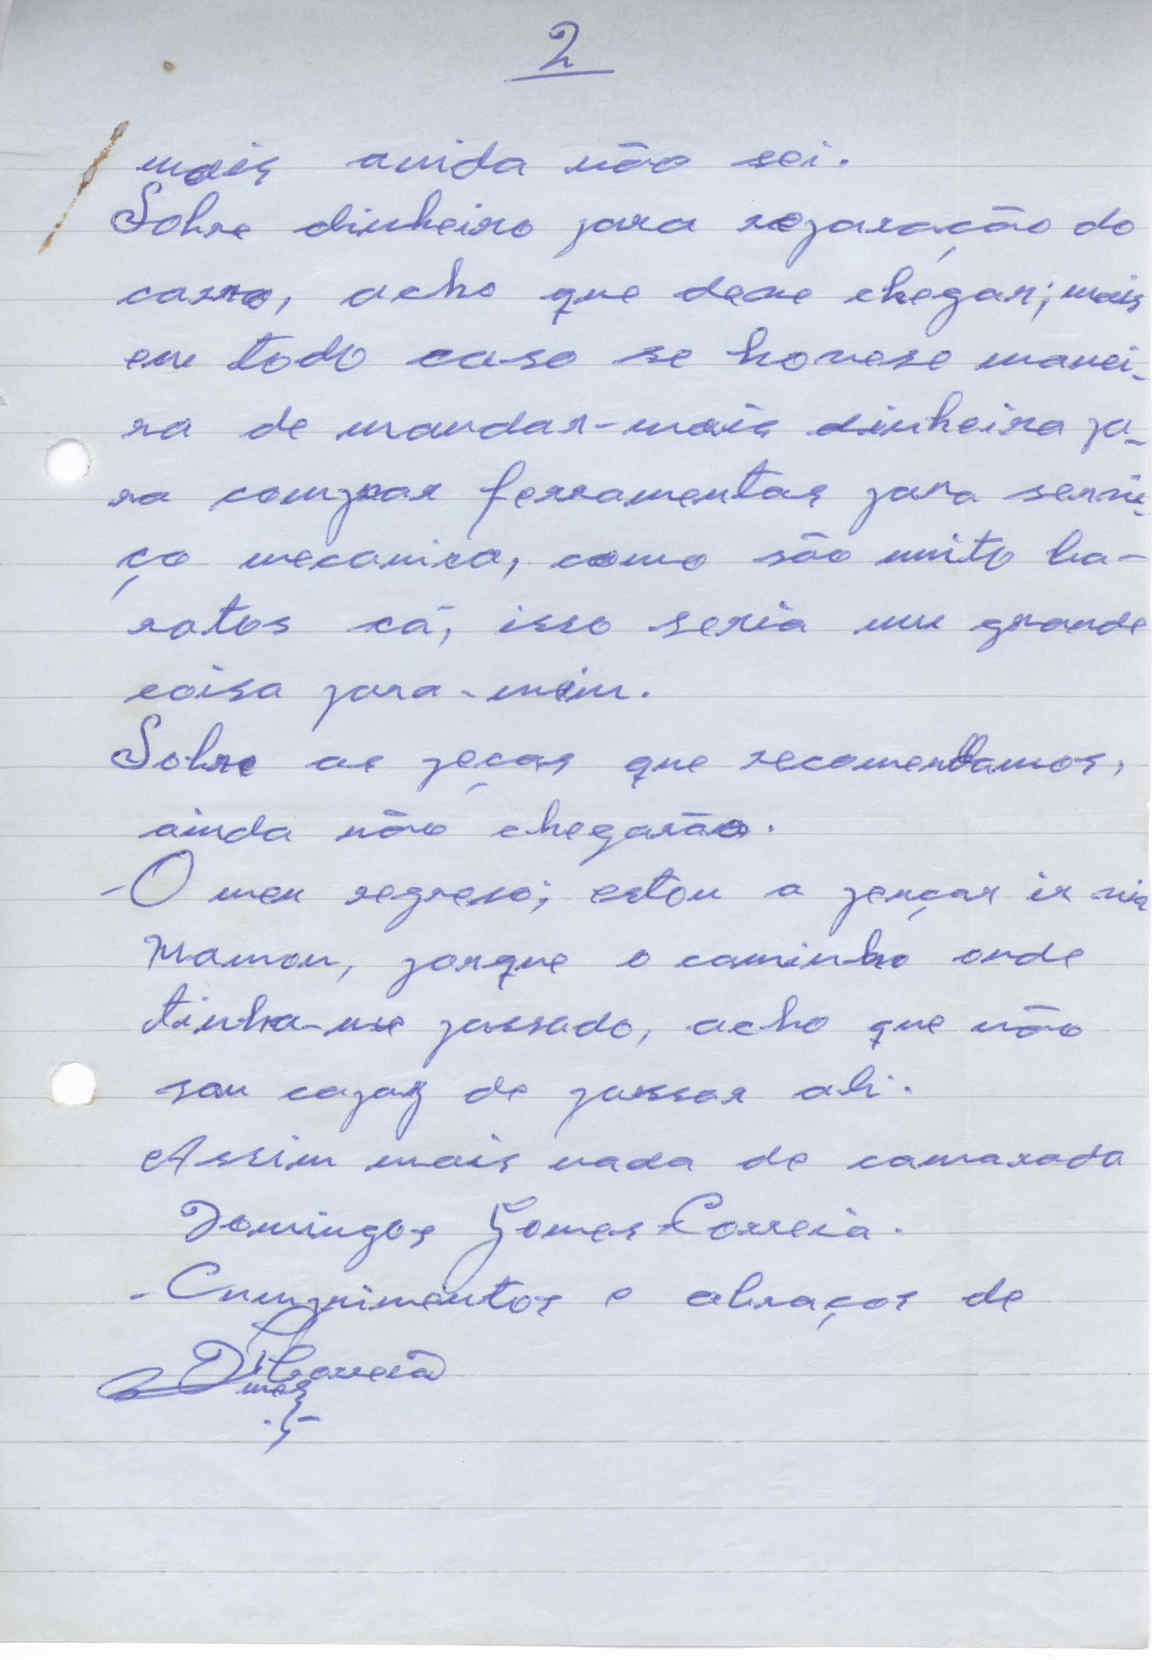 2
mais ainda não sei.
Sobre dinheiro para reparação do
carro, acho que deve chegar; mais
em todo caso se houvese manei-
ra de mandar-mais dinheiro pa-
ra comprar ferramentas para servi-
ço mecanica, como são muito ba-
ratos cá, isso seria um grande
coisa para-mim.
Sobre as peças que recomendamos,
ainda não chegarão.
-O meu regreso; estou a pençar ir via
Mamou, porque o caminho onde
tinha-me passado, acho que não
sou capaz de passar ali.
Assim mais nada de camarada
Domingos Gomes Correia.
- Cumprimentos e abraços de
Correia